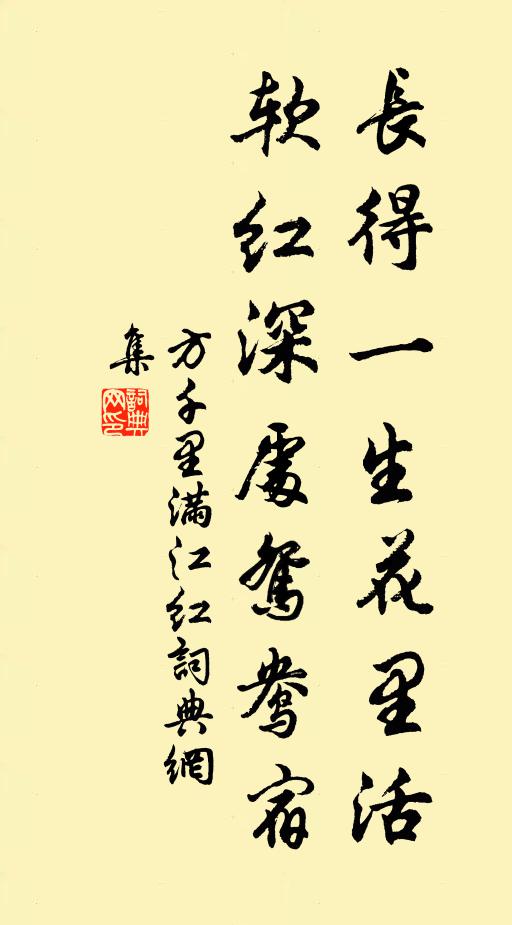 長得一生花里活
软红深處鸳鸯宿
方千里满江红詞典網
集
詞典
网印